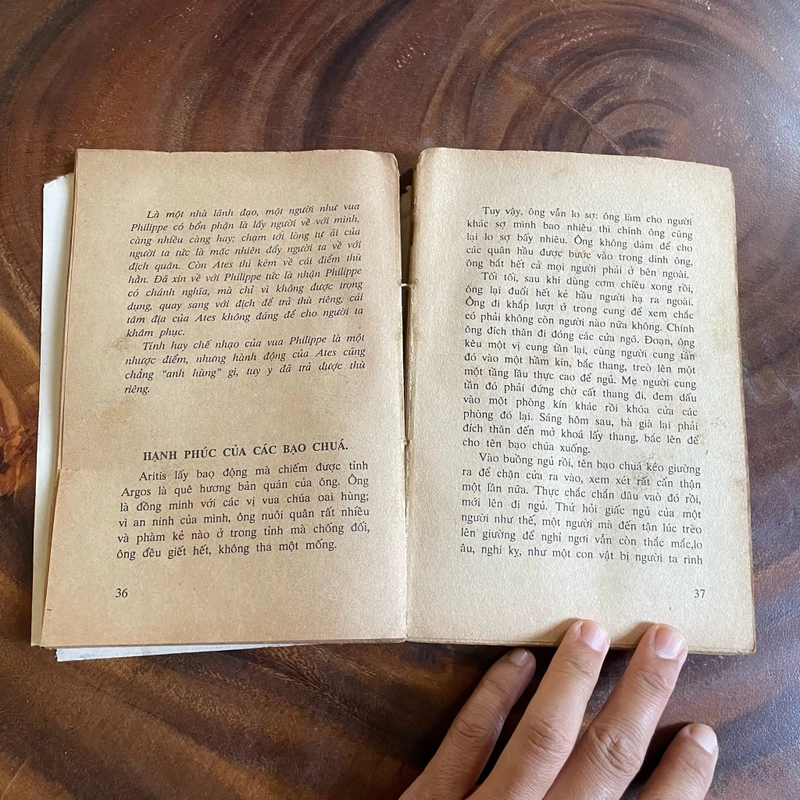 Là một nhà lãnh đạo, một người như vua
Philippe có bổn phận là lấy người về với mình,
càng nhiều càng hay; chạm tới lòng tự ái của
người ta tức là mặc nhiên đẩy người ta về với
địch quân. Còn Ates thì kém về cái điểm thù
hằn. Đã xin về với Philippe tức là nhận Philippe
có chánh nghĩa, mà chỉ vì không được trọng
dụng, quay sang với địch để trả thù riêng, cái
tâm địa của Ates không đáng để cho người ta
khâm phục.
Tính hay chế nhạo của vua Philippe là một
nhược điểm, nhưng hành động của Ates cũng
chẳng "anh hùng" gì, tuy y đã trả được thù
riêng.
HẠNH PHÚC CỦA CÁC BẠO CHUÁ.
Aritis lấy bạo động mà chiếm được tỉnh
Argos là quê hương bản quán của ông. Ông
là đồng minh với các vị vua chúa oai hùng;
vì an nính của mình, ông nuôi quân rất nhiều
và phàm kẻ nào ở trong tỉnh mà chống đối,
ông đều giết hết, không tha một mống.
36
Tuy vậy, ông vẫn lo sợ: ông làm cho người
khác sợ mình bao nhiêu thì chính ông cũng
lại lo sợ bấy nhiêu. Ông không dám để cho
các quân hầu được bước vào trong dinh ông,
ông bắt hết cả mọi người phải ở bên ngoài.
Tối tối, sau khi dùng cơm chiều xong rồi,
ông lại đuổi hết kẻ hầu người hạ ra ngoài.
Ông đi khắp lượt ở trong cung để xem chắc
có phải không còn người nào nữa không. Chính
ông đích thân đi đóng các cửa ngõ. Đoạn, ông
kêu một vị cung tần lại, cùng người cung tần
đó vào một hầm kín, bắc thang, trèo lên một
một tầng lầu thực cao để ngủ. Mẹ người cung
tần đó phải đứng chờ cất thang đi, đem dấu
vào một phòng kín khác rồi khóa cửa các
phòng đó lại. Sáng hôm sau, bà già lại phải
đích thân đến mở khoá lấy thang, bắc lên để
cho tên bạo chúa xuống.
Vào buồng ngủ rồi, tên bạo chuá kéo giường
ra để chặn cửa ra vào, xem xét rất cẩn thận
một lần nữa. Thực chắc chắn đâu vào đó rồi,
mới lên đi ngủ. Thử hỏi giấc ngủ của một
người như thế, một người mà đến tận lúc trèo
lên giường để nghỉ ngơi vẫn còn thắc mắc,lo
âu, nghi kỵ, như một con vật bị người ta rình
37